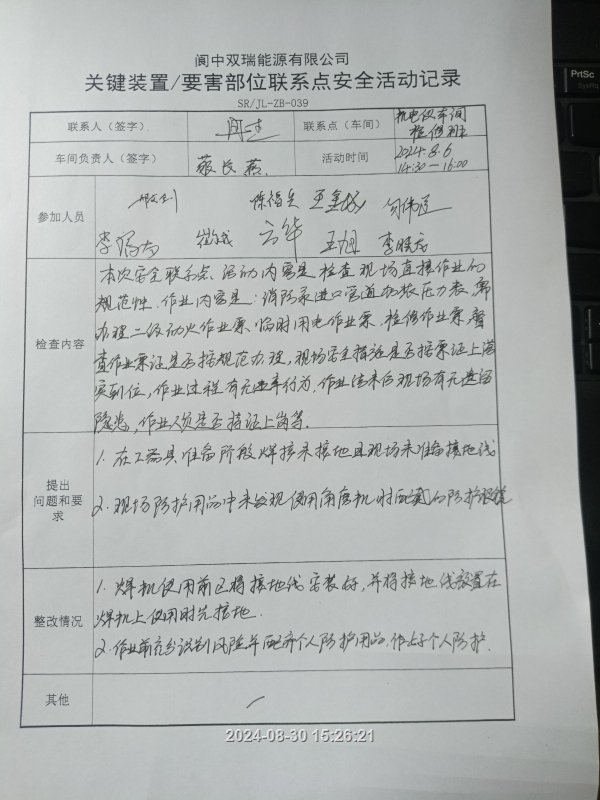 PrtSc
阆中双瑞能源有限公司
关键装置/要害部位联系点安全活动记录
SR/JL-ZB-039
联系人（签字）
联系点（车间） 机电仪车间
检修班
车间负责人（签字）
活动时间 2024.8.6
14:30—16:00
参加人员
王旭
检查内容
本次安全联系点活动内容是检查现场直接作业的
规范性。作业内容是：消防泵进口管道加装压力表，需
办理二级动火作业票、临时用电作业票、检修作业票，督
查作业票证是否按规范办理，现场安全措施是否按票证上落
实到位，作业过程有无违章行为，作业结束后现场有无遗留
隐患，作业人员是否持证上岗等。
提出
问题和要
求
1. 在工器具准备阶段焊接未接地且现场未准备接地线
2. 现场防护用品中未发现使用角磨机时配戴的防护眼镜
整改情况
1. 焊机使用前已将接地线安装好，并将接地线放置在
焊机上使用时先接地.
2. 作业前充分识别风险并配齐个人防护用品，作好个人防护.
其他 /
2024-08-30 15:26:21